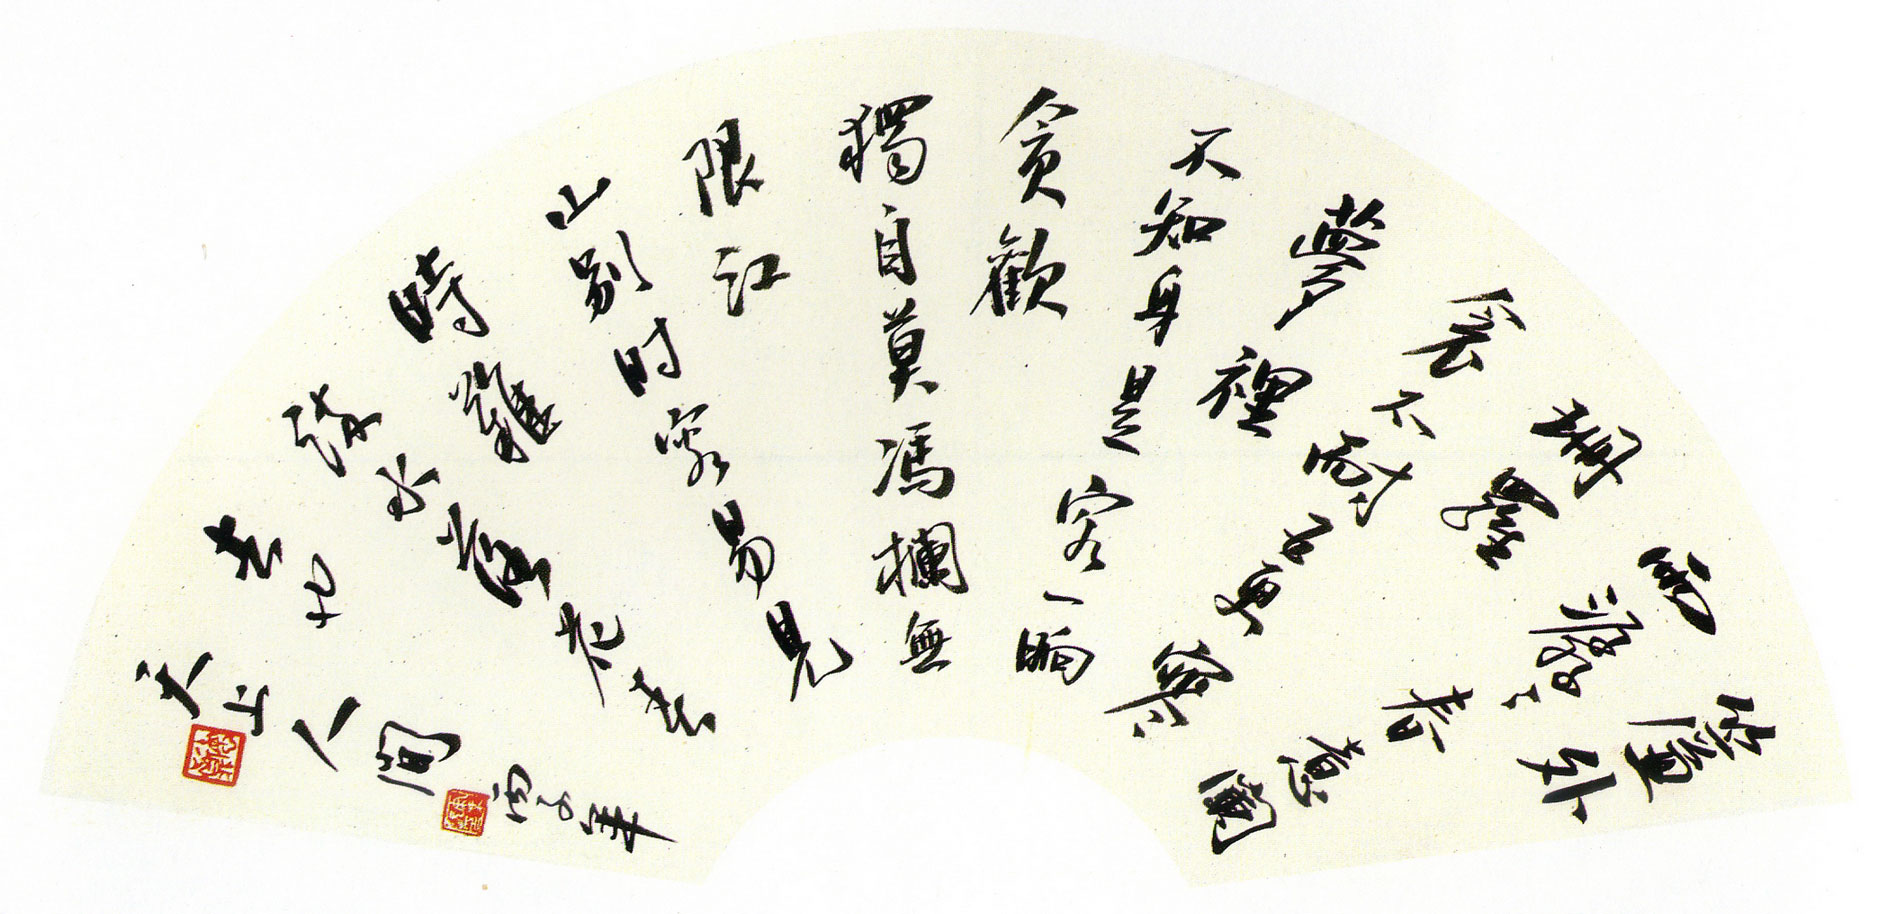 簾外
雨潺〻春意闌
珊羅
衾不耐五更寒
夢裡
不知身是客一晌
貪歡
獨自莫馮欄無
限江
山别时容易見
時難
流水落花春
去也
天上人間 丙子年